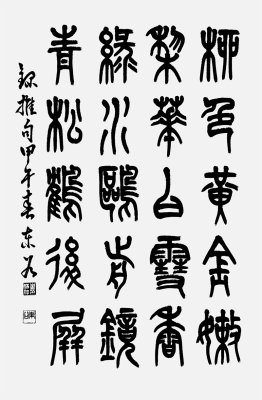 柳色黄金嫩
梨華白雪香
綠水鷗前鏡
青松鶴後屏
錄推句甲午春東於